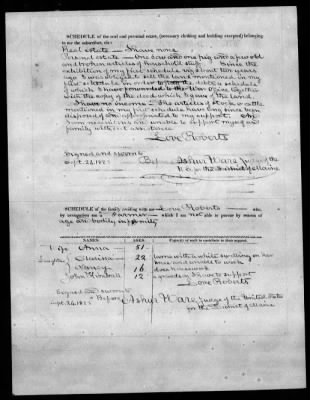 SCHEDULE of the real and personal estate, (necessary clothing and bedding excepted) belonging
to me the subscriber, viz:
Real estate — I have none.
Personal estate — One cow one pig and a few old
and broken articles of household stuff. Since the
exhibition of my first schedule about two years
ago I was obliged to sell the land mentioned in my
schedule in order to debts, a schedule
of which I have forwarded to the War Office together
with the copy of the deed which I gave of the land
I have no income — The articles of stock or cattle
mentioned in my first schedule have long since been
disposed of or appropriated to my support.
I am unable to support myself or
family without assistance
Love Roberts
Signed and sworn to
Sept. 24, 1825
By Ashur Ware Judge of the
U.S. for the District of Maine
SCHEDULE of the family residing with me Love Roberts who,
by occupation am a Farmer which I am not able to pursue by reason of
age and bodily infirmity
NAMES. AGES. Capacity of each to contribute to their support.
Anna 51
22 lame with a white swelling on her
knee and unable to work
Nancy 16 does housework
John Kimball 12 a grandson I have to support
Love Roberts
Signed and sworn to
Sept. 24, 1825 Before Ashur Ware Judge of the United States
for the District of Maine